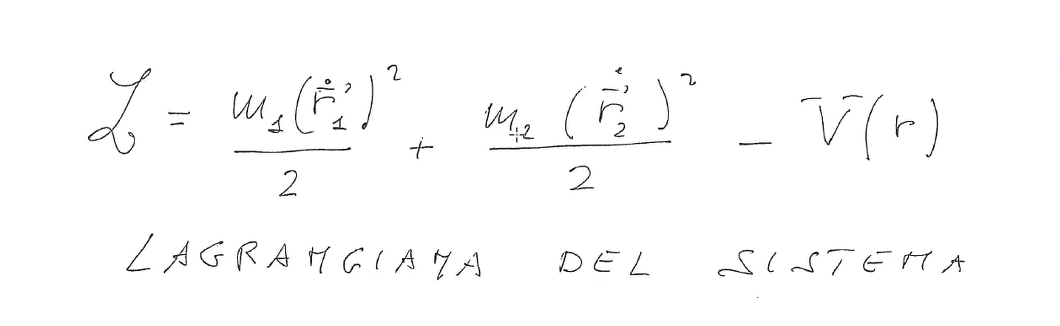 ℒ = m₁(ṙ⃗₁')²/2 + m₂(ṙ⃗₂')²/2 − V(r)
LAGRANGIANA DEL SISTEMA